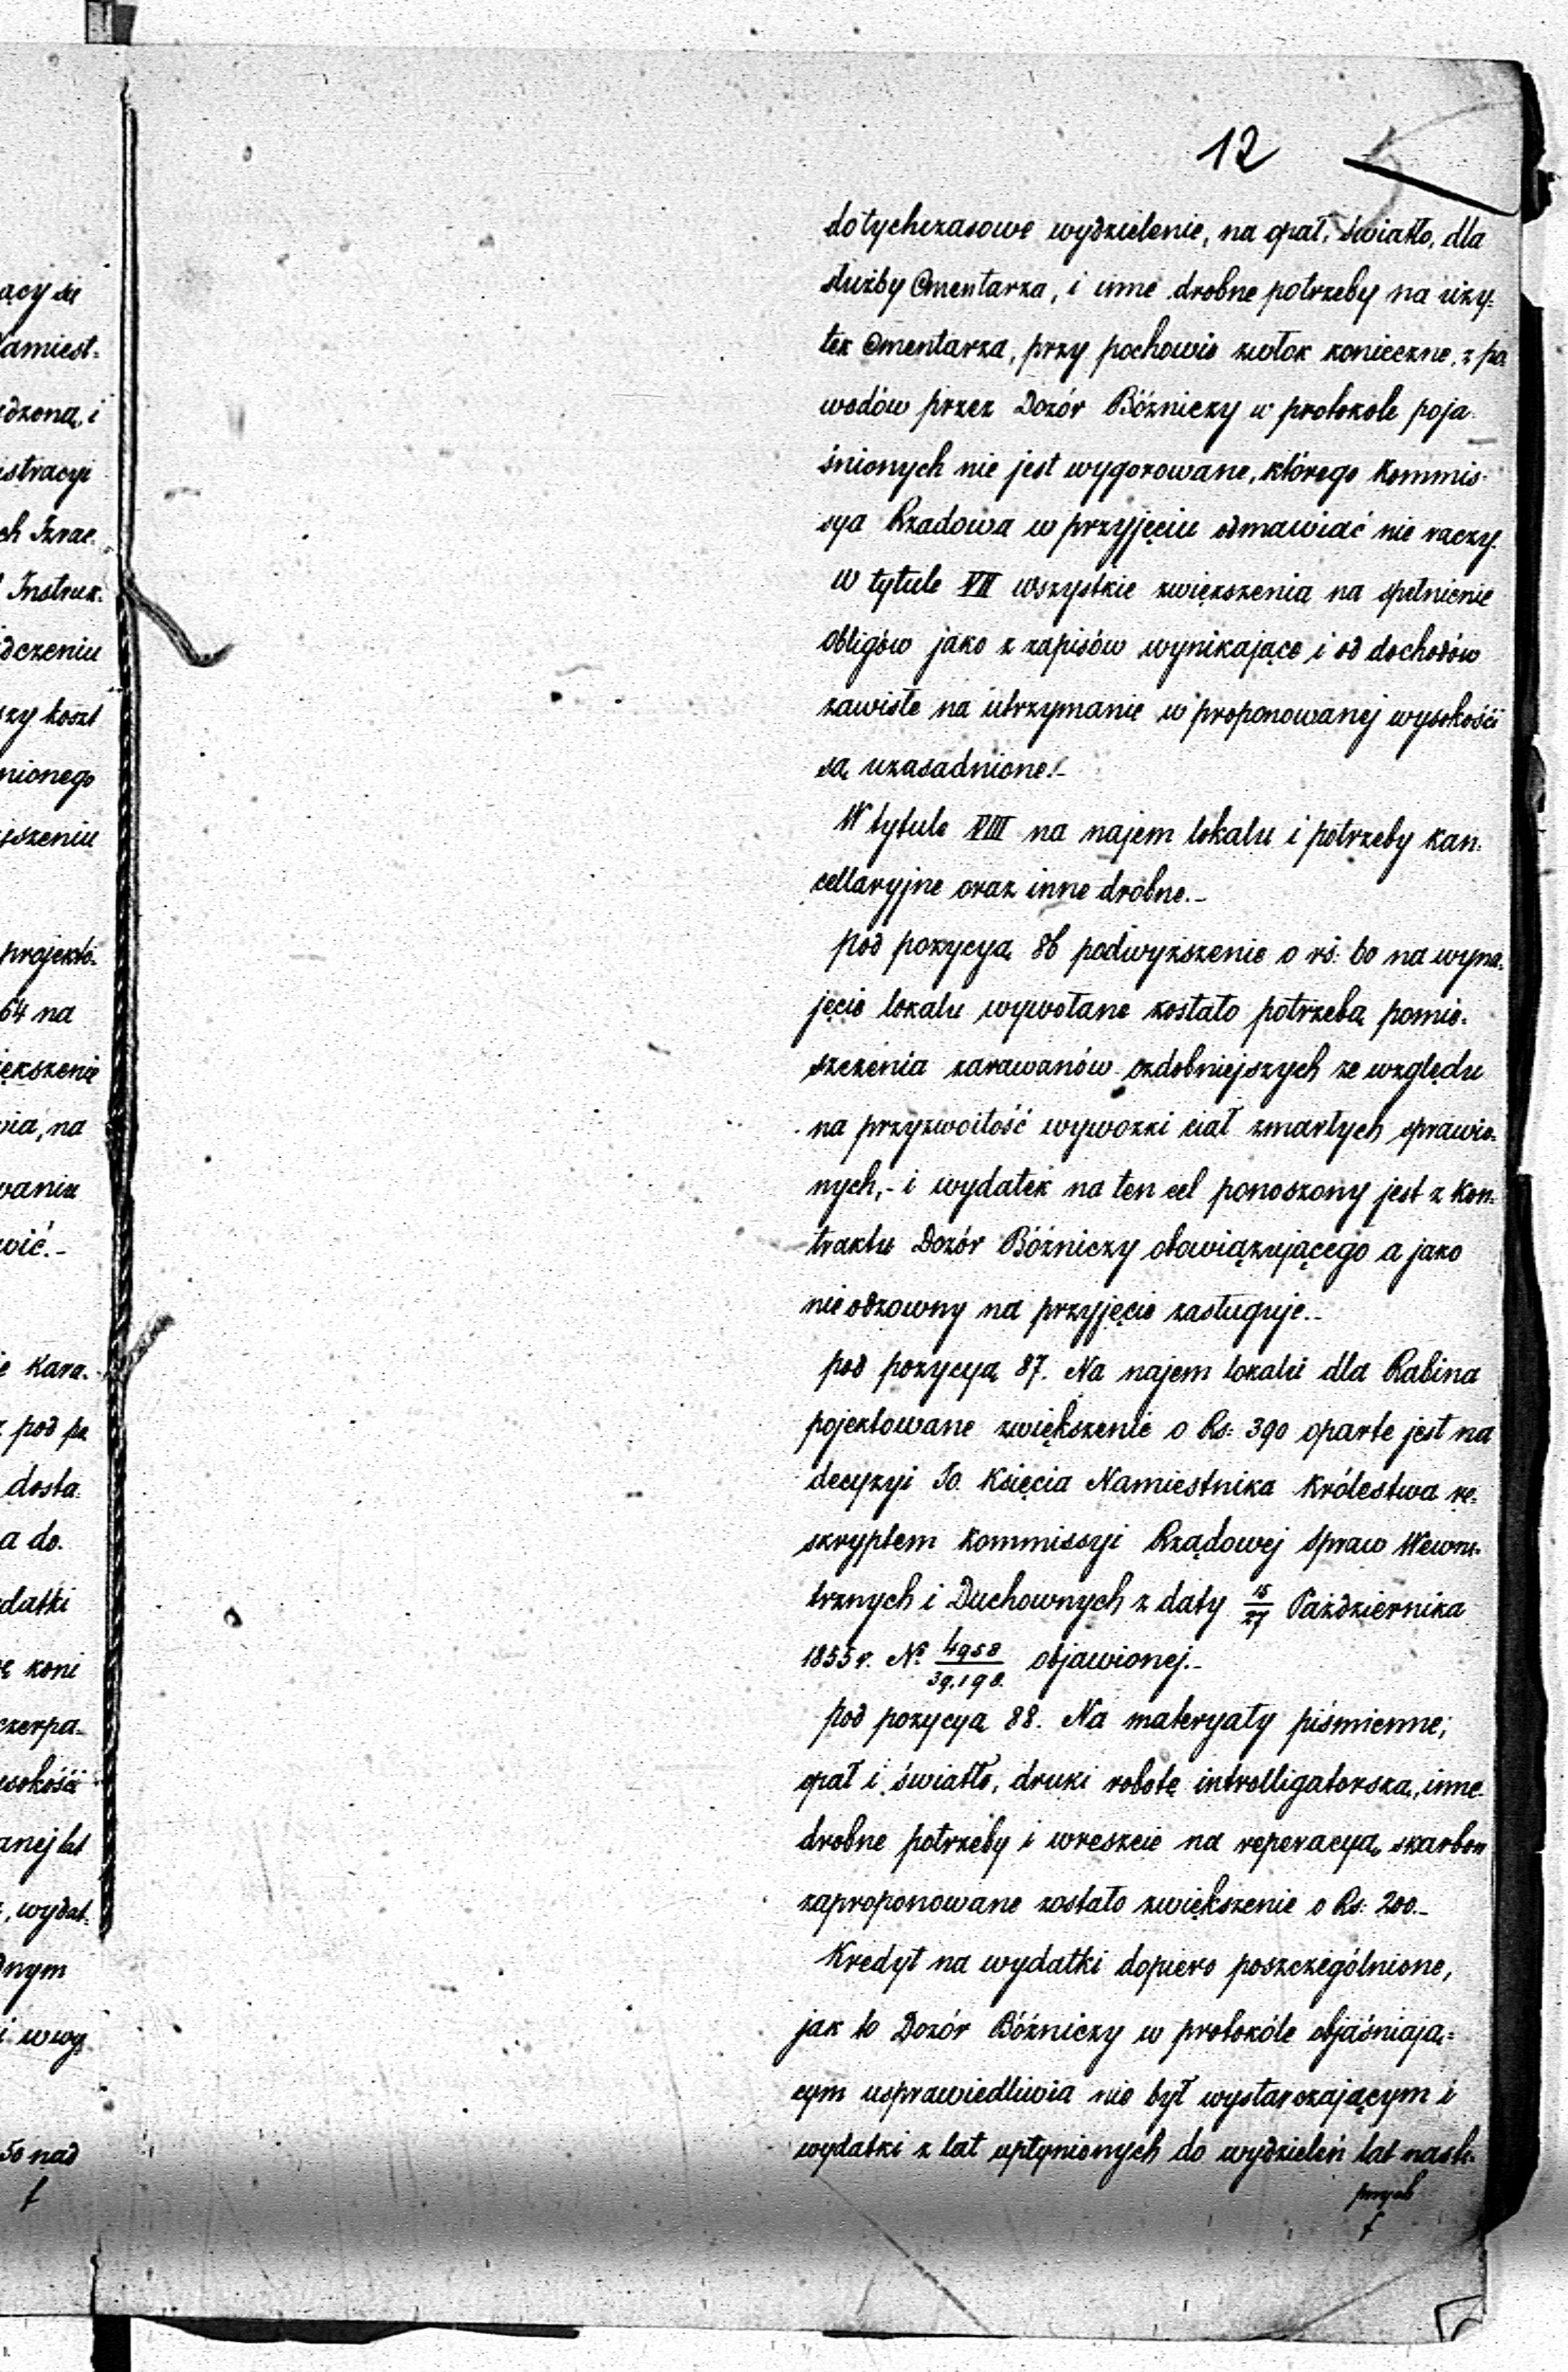 12
dotychczasowe wydzielenie, na opał, światło, dla
służby Cmentarza, i inne drobne potrzeby na uży-
tek Cmentarza, przy pochowie zwłok konieczne, z po
wodów przez Dozór Bóżniczy w protokole poja
śnionych nie jest wygorowane, którego Kommis-
sya Rządowa w przyjęciu odmawiać nie raczy.
w tytule VII wszystkie zwiększenia na spełnienie
obligów jako z zapisów wynikające i od dochodów
zawisłe na utrzymanie w proponowanej wysokości
są uzasadnione.-
W tytule VIII na najem lokalu i potrzeby kan-
cellaryjne oraz inne drobne.-
pod pozycyą 86 podwyższenie o rś: 60 na wyna-
jęcie lokalu wywołane zostało potrzebą pomie-
szczenia karawanów ozdobniejszych ze względu
na przyzwoitość wywózki ciał zmarłych sprawio-
nych,- i wydatek na ten cel ponoszony jest z kon-
traktu Dozór Bóżniczy obowiązującego a jako
nieodzowny na przyjęcie zasługuje.-
pod pozycyą 87. Na najem lokalu dla Rabina
pojektowane zwiększenie o Rs: 390 oparte jest na
decyzyi Jo. Księcia Namiestnika Królestwa re-
skryptem Kommissyi Rządowej Spraw Wewnę-
trznych i Duchownych z daty 15/27 Października
1855 r. No. 4958/39.198. objawionej.-
pod pozycyą 88. Na materyały piśmienne,
opał i światło, druki robotę introlligatorską, inne
drobne potrzeby i wreszcie na reperacyą skarbon
zaproponowane zostało zwiększenie o Rs: 200.-
Kredyt na wydatki dopiero poszczególnione,
jak to Dozór Bóżniczy w protokóle objaśniają-
cym usprawiedliwia nie był wystarczającym i
wydatki z lat upłynionych do wydzieleń lat nastę-
pnych